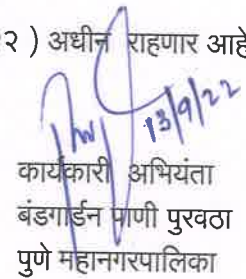 २ ) अधीन राहणार आहे
13/9/22
कार्यकारी अभियंता
बंडगार्डन पाणी पुरवठा
पुणे महानगरपालिका